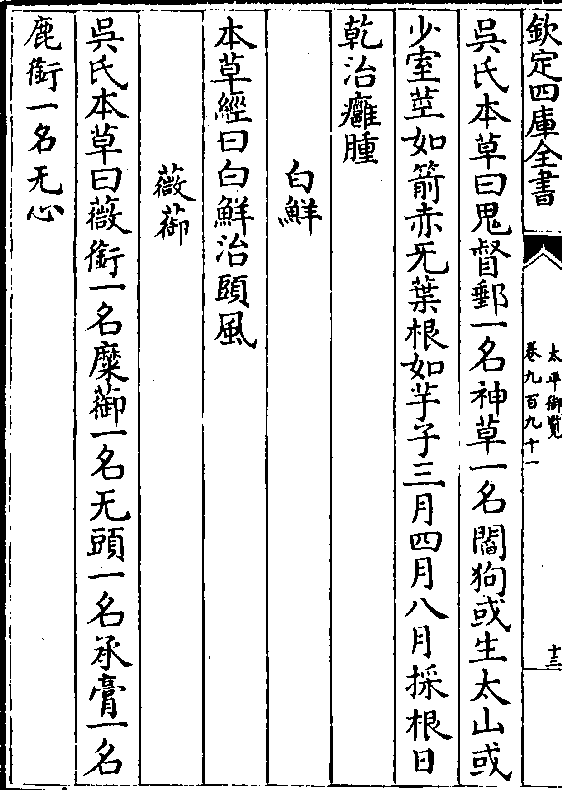 欽定四庫全書
太平御覽
卷九百九十一
十三
吳氏本草曰鬼督郵一名神草一名閻狗或生太山或
少室莖如箭赤无葉根如芋子三月四月八月採根日
乾治癰腫
白鮮
本草經曰白鮮治頭風
薇蘅
吳氏本草曰薇銜一名糜蘅一名无頭一名承膏一名
鹿銜一名无心